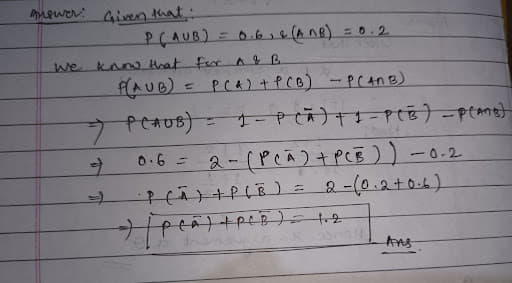 Answer: Given that:
P(A∪B) = 0.6, & (A∩B) = 0.2
We know that for A & B
P(A∪B) = P(A) + P(B) - P(A∩B)
⇒ P(A∪B) = 1 - P(Ā) + 1 - P(B̄) - P(A∩B)
⇒ 0.6 = 2 - (P(Ā) + P(B̄)) - 0.2
⇒ P(Ā) + P(B̄) = 2 - (0.2 + 0.6)
⇒ P(Ā) + P(B̄) = 1.2
Ans